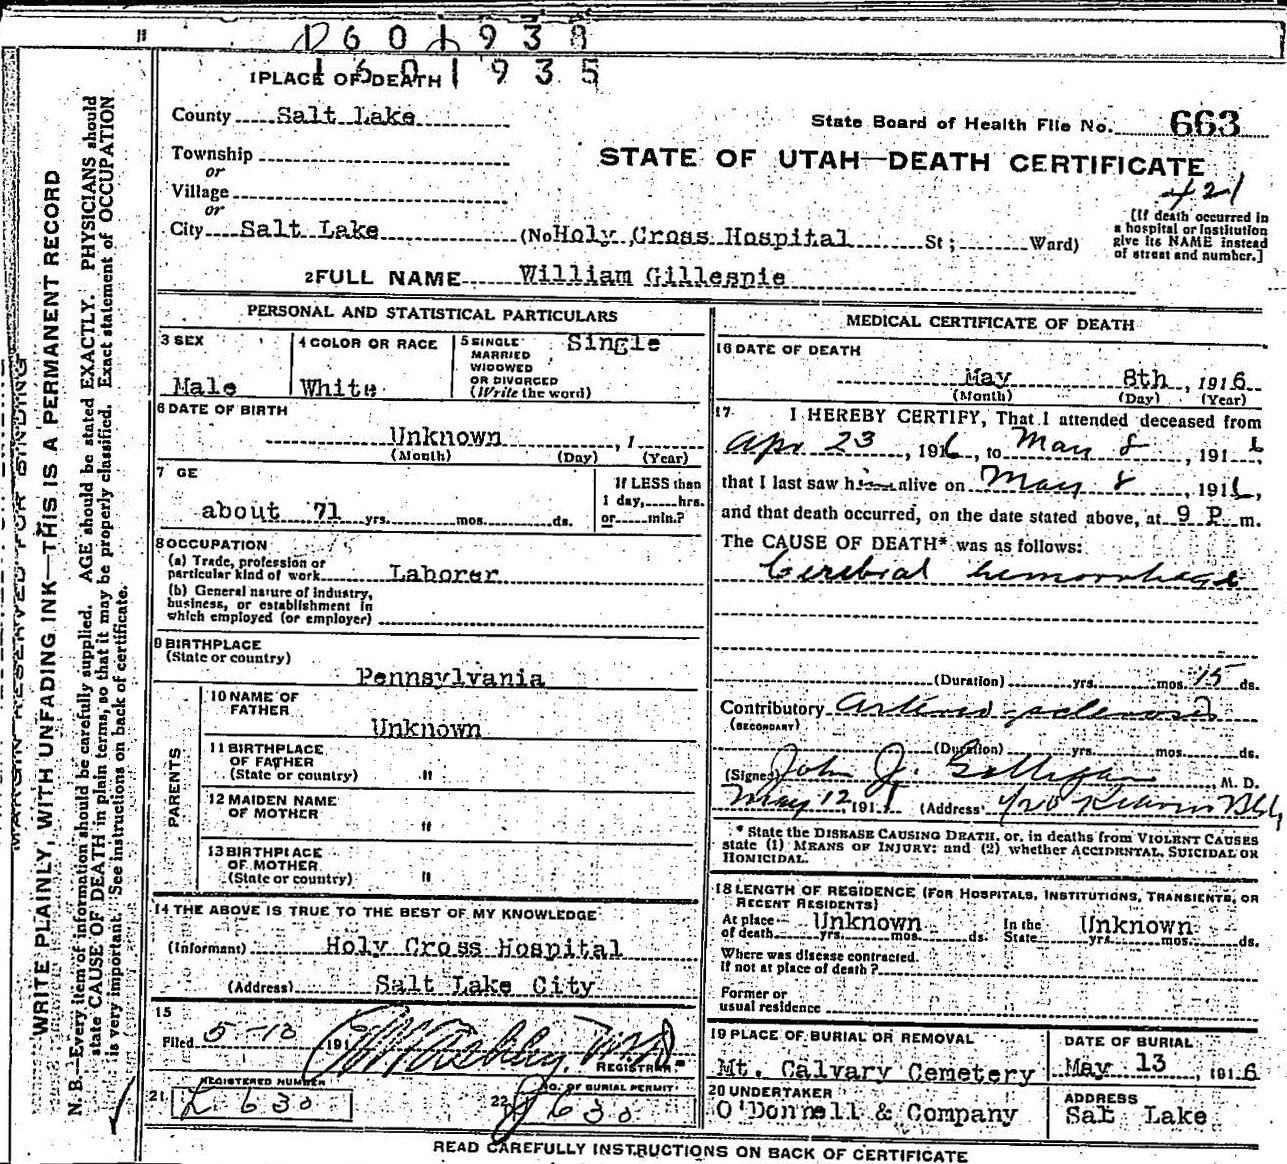 1601938
1601935
1 PLACE OF DEATH
County Salt Lake
State Board of Health File No. 663
Township
or
STATE OF UTAH—DEATH CERTIFICATE
421
Village
or
City Salt Lake (No Holy Cross Hospital St; Ward)
[If death occurred in
a hospital or institution
give its NAME instead
of street and number.]
2 FULL NAME William Gillespie
PERSONAL AND STATISTICAL PARTICULARS
3 SEX
Male
4 COLOR OR RACE
White
5 SINGLE
MARRIED
WIDOWED
OR DIVORCED
(Write the word)
Single
6 DATE OF BIRTH
Unknown , 1
(Month) (Day) (Year)
7 GE
about 71 yrs. mos. ds.
If LESS than
1 day, hrs.
or min.?
8 OCCUPATION
(a) Trade, profession or
particular kind of work Laborer
(b) General nature of industry,
business, or establishment in
which employed (or employer)
9 BIRTHPLACE
(State or country)
Pennsylvania
PARENTS
10 NAME OF
FATHER
Unknown
11 BIRTHPLACE
OF FATHER
(State or country) "
12 MAIDEN NAME
OF MOTHER
"
13 BIRTHPLACE
OF MOTHER
(State or country) "
14 THE ABOVE IS TRUE TO THE BEST OF MY KNOWLEDGE
(Informant) Holy Cross Hospital
(Address) Salt Lake City
15
Filed 5-13 191
REGISTRAR
REGISTERED NUMBER
21 L 630
NO. OF BURIAL PERMIT
22 630
MEDICAL CERTIFICATE OF DEATH
16 DATE OF DEATH
May 8th , 1916
(Month) (Day) (Year)
17 I HEREBY CERTIFY, That I attended deceased from
Apr 23 , 1916, to May 8 , 1916
that I last saw him alive on May 8 , 1916,
and that death occurred, on the date stated above, at 9 P. m.
The CAUSE OF DEATH* was as follows:
Cerebral hemorrhage
(Duration) yrs. mos. 15 ds.
Contributory Arterio sclerosis
(SECONDARY)
(Duration) yrs. mos. ds.
(Signed) John J. Galligan , M. D.
May 12 191 (Address) Kearns Bldg
* State the DISEASE CAUSING DEATH, or, in deaths from VIOLENT CAUSES
state (1) MEANS OF INJURY; and (2) whether ACCIDENTAL, SUICIDAL OR
HOMICIDAL.
18 LENGTH OF RESIDENCE (FOR HOSPITALS, INSTITUTIONS, TRANSIENTS, OR
RECENT RESIDENTS)
At place Unknown In the Unknown
of death yrs. mos. ds. State yrs. mos. ds.
Where was disease contracted.
if not at place of death?
Former or
usual residence
19 PLACE OF BURIAL OR REMOVAL
Mt. Calvary Cemetery
DATE OF BURIAL
May 13 , 1916
20 UNDERTAKER
O'Donnell & Company
ADDRESS
Salt Lake
READ CAREFULLY INSTRUCTIONS ON BACK OF CERTIFICATE
MARGIN RESERVED FOR BINDING
WRITE PLAINLY, WITH UNFADING INK—THIS IS A PERMANENT RECORD
N. B.—Every item of information should be carefully supplied. AGE should be stated EXACTLY. PHYSICIANS should
state CAUSE OF DEATH in plain terms, so that it may be properly classified. Exact statement of OCCUPATION
is very important. See instructions on back of certificate.